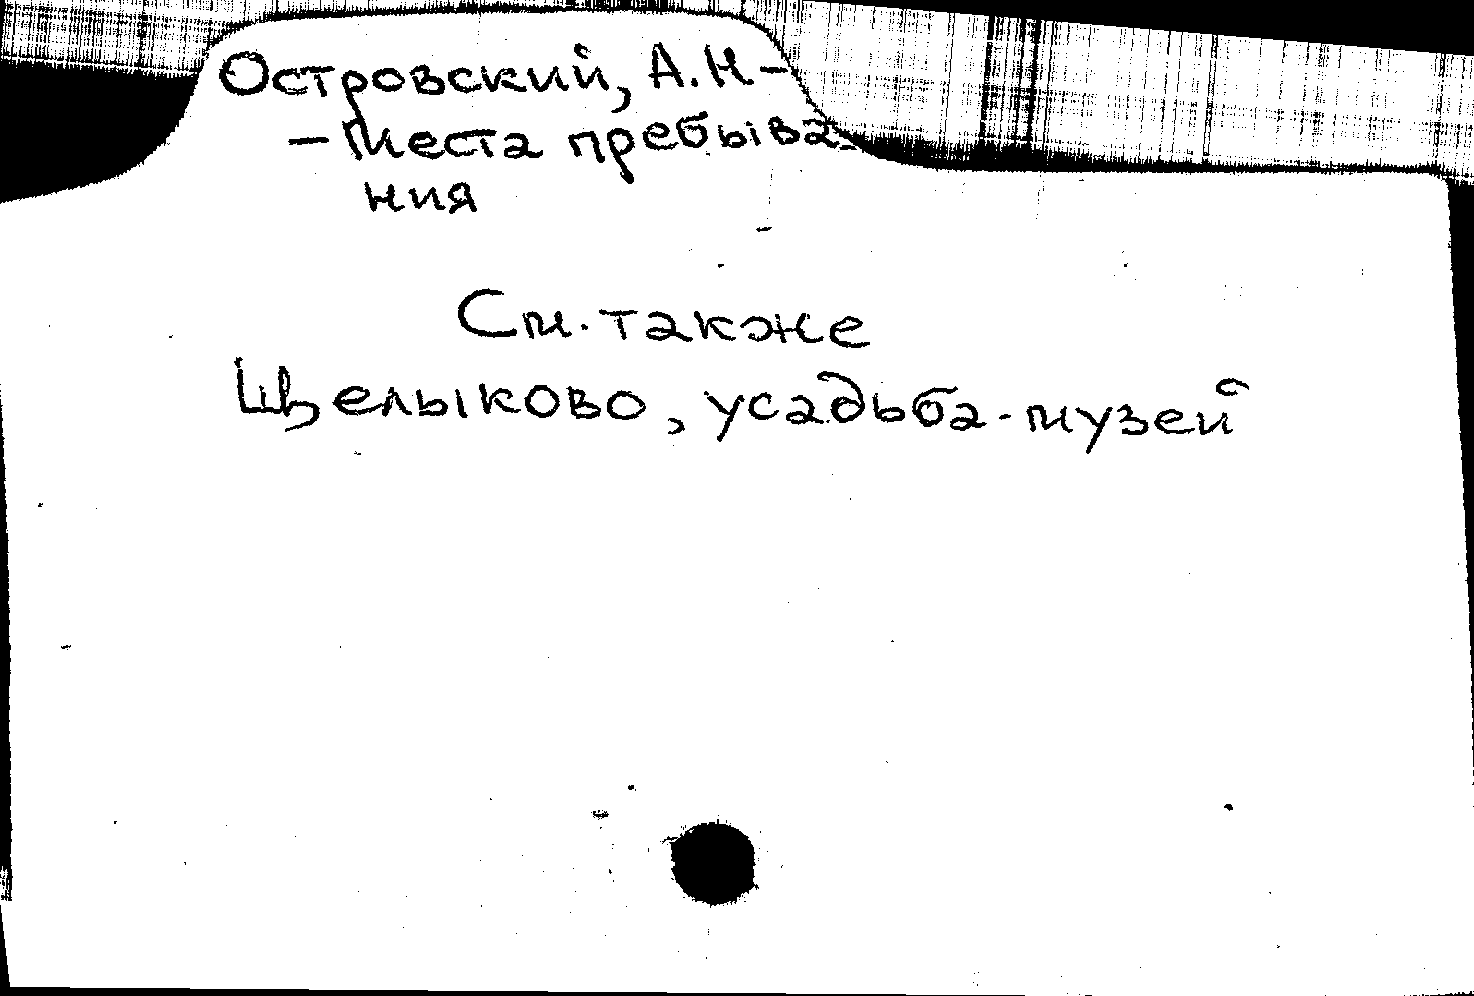 Островский, А.Н –
– Места пребыва-
ния
См. также
Щелыково, усадьба-музей